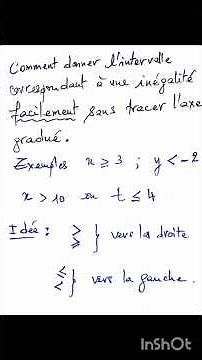 Comment donner l'intervalle
correspondant à une inégalité
facilement sans tracer l'axe
gradué.
Exemples x ≥ 3 ; y < -2
x > 10 ou t ≤ 4
Idée : ≥ > } vers la droite
≤ < } vers la gauche.
InShOt